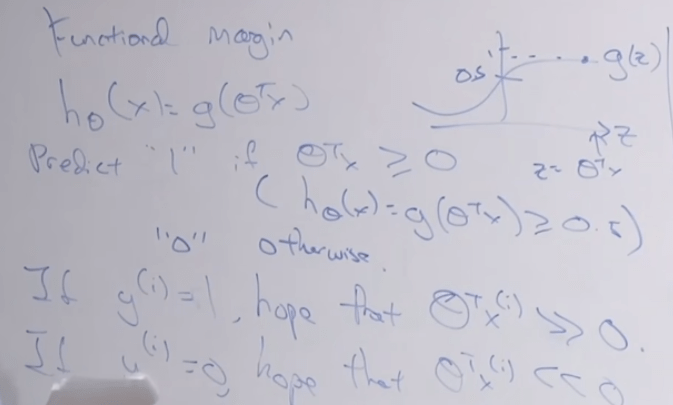 Functional margin
1
0.5
g(z)
h_θ(x) = g(θᵀx)
z
z = θᵀx
Predict "1" if θᵀx ≥ 0
( h_θ(x) = g(θᵀx) ≥ 0.5)
"0" otherwise.
If y⁽ⁱ⁾ = 1, hope that θᵀx⁽ⁱ⁾ >> 0.
If y⁽ⁱ⁾ = 0, hope that θᵀx⁽ⁱ⁾ << 0